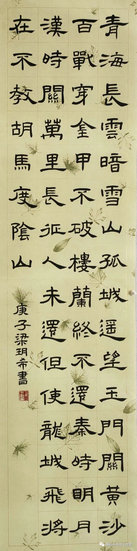 青海長雲暗雪山孤城遥望玉門關黄沙
百戰穿金甲不破樓蘭終不還秦時明月
漢時關萬里長征人未還但使龍城飛將
在不教胡馬度陰山
庚子梁玥希書